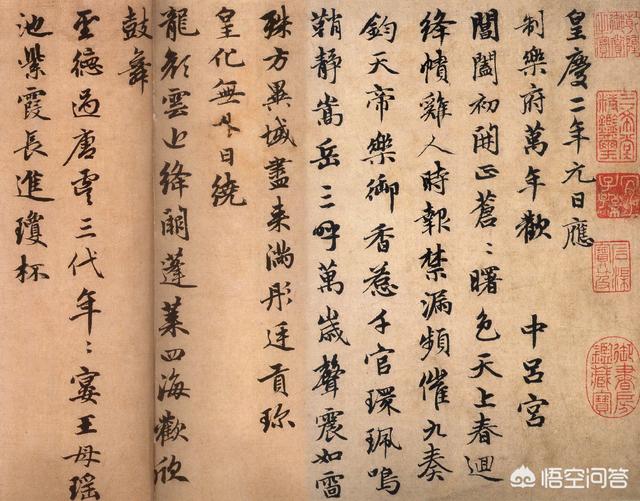 皇慶二年元日應
制樂府萬年歡　中呂宮
閶闔初開正蒼〻曙色天上春迴
絳幘雞人時報禁漏頻催九奏
鈞天帝樂御香惹千官環珮鳴
鞘靜嵩岳三呼萬歲聲震如雷
殊方異域盡来滿彤廷貢珎
皇化無外日繞
龍顏雲近絳闕蓬萊四海歡欣
鼓舞
聖德過唐虞三代年〻宴王母瑤
池紫霞長進瓊杯
三希堂精鑒璽
宜子孫
石渠寶笈
御書房鑑藏寶
悟空问答